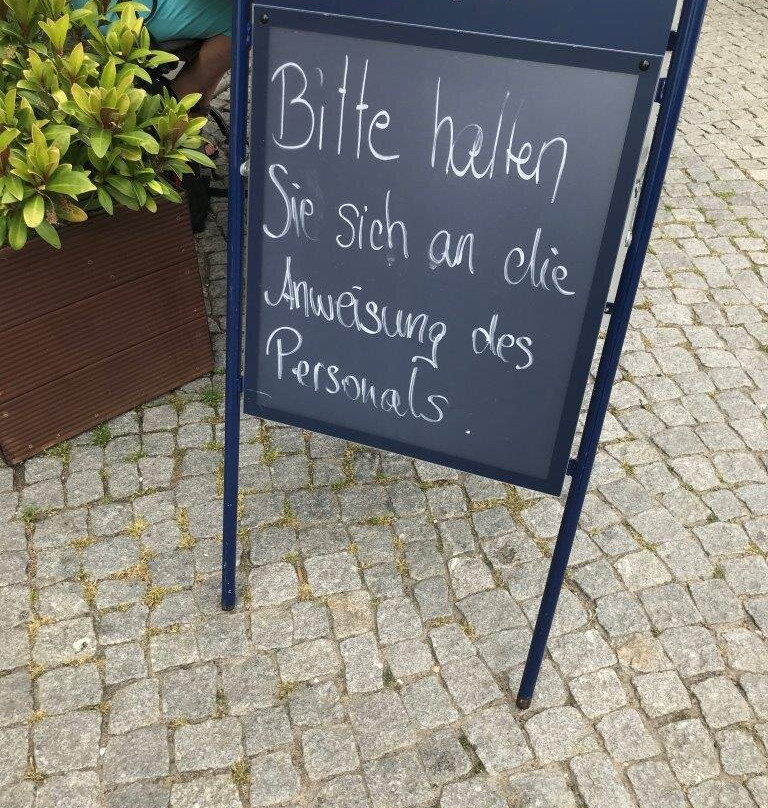 Bitte halten
Sie sich an die
Anweisung des
Personals.